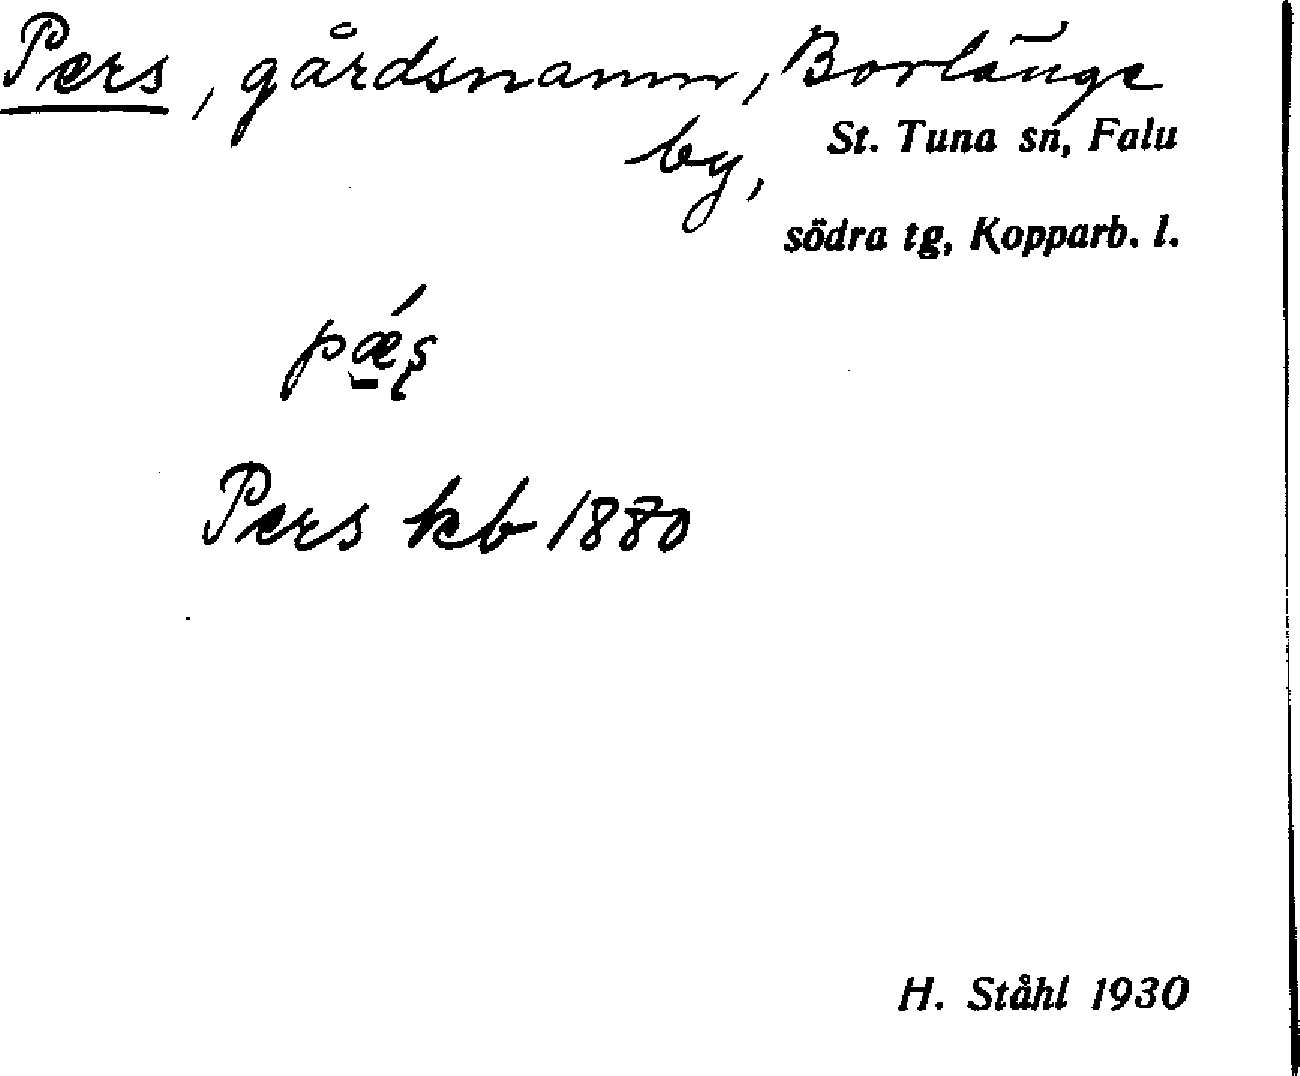 Pers, gårdsnamn, Borlänge
by, St. Tuna sn, Falu
södra tg, Kopparb. l.
pǽ̱ʂ
Pers kb 1880
H. Ståhl 1930